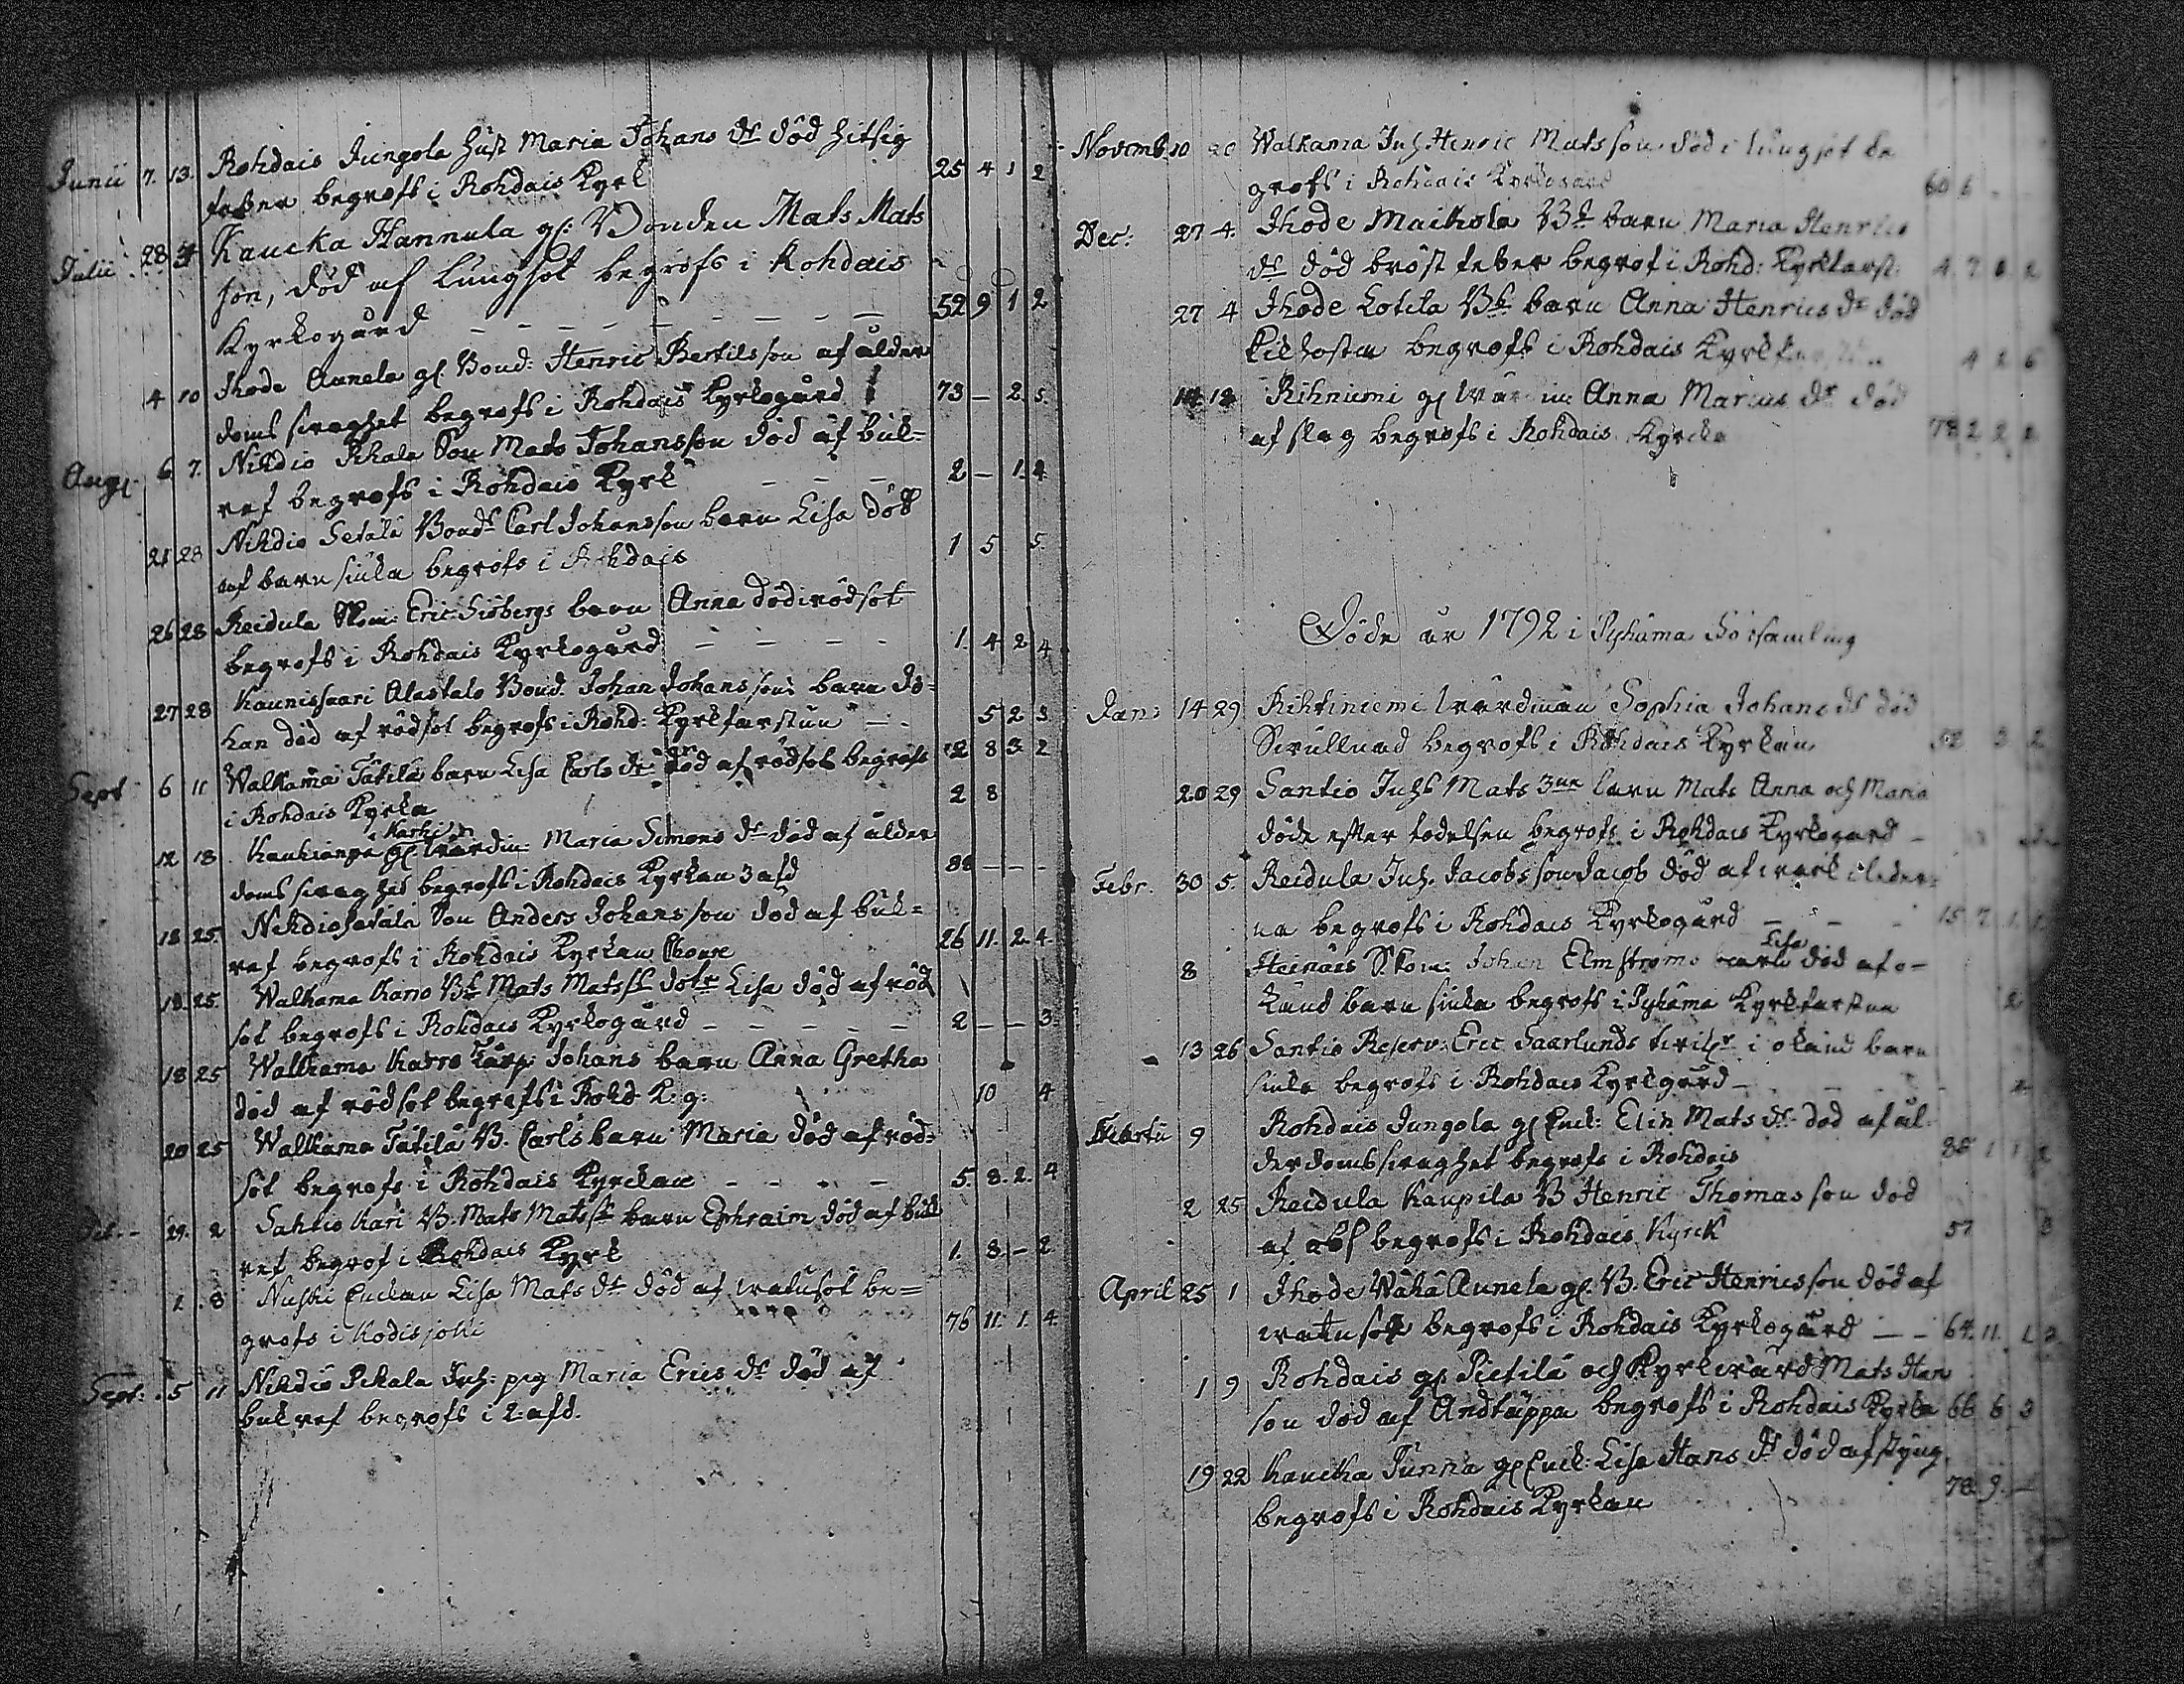 Junii 7. 13. Rohdais Jungola Hust Maria Johans dr död hitsig
feber begrofs i Rohdais Kyrk 25 4 1 2
Julii 28 31 Kaucka Hannula gl: Bonden Mats Mats
son, död af Lungsot begrofs i Rohdais
Kyrkogård 52 9 1 2
4 10 Ihode Aunela gl. Bond: Henric Bertilsson af ålder
doms svaghet begrofs i Rohdais Kyrkogård 73 — 2. 5.
Aug. 6 7. Nihdio Pikala Son Mats Johansson död af buk=
ref begrofs i Rohdais Kyrk 2 — 1. 4
21 28 Nihdio Setälä Bondr Carl Johansson barn Lisa död
af barnsiuka begrofs i Rohdais 1 5 5.
26 28 Reidula Eric Siöbergs barn Anna död i rödsot
begrofs i Rohdais Kyrkogård 1. 4 2 4
27 28 Kaunissaari Alastalo Bond. Johan Johanssons barn Jo=
han död af rödsot begrofs i Rohd: Kyrkfarstun 5 2 3
Sept 6 11 Walkama Tätilä barn Lisa Carls dr död af rödsot begrofs 12 8 3 2
i Rohdais Kyrka 2 8
Karhi
12 18 gl. Wärdin: Maria Simons dr död af ålder
doms svaghet begrofs i Rohdais Kyrkan 3 afd 88 — — —
18 25. Nihdio Setälä Son Anders Johansson död af buk=
ref begrofs i Rohdais Kyrkan 26 11. 2. 4.
18. 25. Walkama Karro Mats Matss dotr Lisa död af röd
sot begrofs i Rohdais Kyrkogård 2 — — 3.
18 25 Walkama Karro Johans barn Anna Gretha
död af rödsot begrofs i Rohd K. g: 10 4
20 25 Walkama Tätilä B. Carls barn Maria död af röd=
sot begrofs i Rohdais Kyrckan 5. 8. 2. 4
29. 2 Kari B. Mats Matss barn Ephraim död af buk
ref begrof i Rohdais Kyrk 1. 8. — 2
1. 8 Enckan Lisa Mats dr död af watusot be=
grofs i Kodisjoki 76 11. 1. 4.
Sept: 5 11 Nihdio Pikala Inh: pig Maria Erics dr död af
bukref begrofs i 2: afd.
Novemb. 10 20 Walkama Inh Henric Matsson död i lungsot be
grofs i Rohdais Kyrkogård 60 6
Dec: 27 4. Ihode Maihola Bd barn Maria Henrics
dr död bröst feber begrof i Rohd: Kyrkfarst: 4 7 2
27 4 Ihode Kotila barn Anna Henrics dr död
Kikhosta begrofs i Rohdais 4 2 6
14 18 Rihniemi gl Anna Marcus dr död
af slag begrofs i Rohdais Kyrcka 78 2 2 2
Döde år 1792 i Pyhäma Församling
Jan: 14 29 Rihtniemi Sophia Johans dr död
begrofs i Rohdais Kyrkan 3 2
20 29 Santio Inhs Mats 3ne barn Mats Anna och Maria
döde efter födelsen begrofs i Rohdais Kyrkogård
Febr. 30 5. Reidula Inh. Jacobsson Jacob död af werk i leder=
na begrofs i Rohdais Kyrkogård 15 7 1
Lisa
8 Heinäis Johan Elmströms barn död af o-
känd barnsiuka begrofs i Pyhäma Kyrkfarstun 2
13 26 Santio Reserv: Eric Saarlunds i okänd barn
siuka begrofs i Rohdais Kyrkgård
Martii 9 Rohdais Jungola gl Enck: Elin Mats dr död af ål
derdoms svaghet begrofs i Rohdais 88 1 1 2
2 25 Reidula Kaupila B Henric Thomasson död
af begrofs i Rohdais Kyrck 57 3
April 25 1 Ihode Wähä Aunela gl. B. Eric Henricsson död af
watusot begrofs i Rohdais Kyrkogård 64. 11. 1 2
1 9 Rohdais gl Pietilä och Kyrkiovärd Mats Han
son död af Andtäppa begrofs i Rohdais Kyrka 66 6 3
19 22 Kaucka Junna gl Enck: Lisa Hans dr död af styng
begrofs i Rohdais Kyrkan 78. 9. —